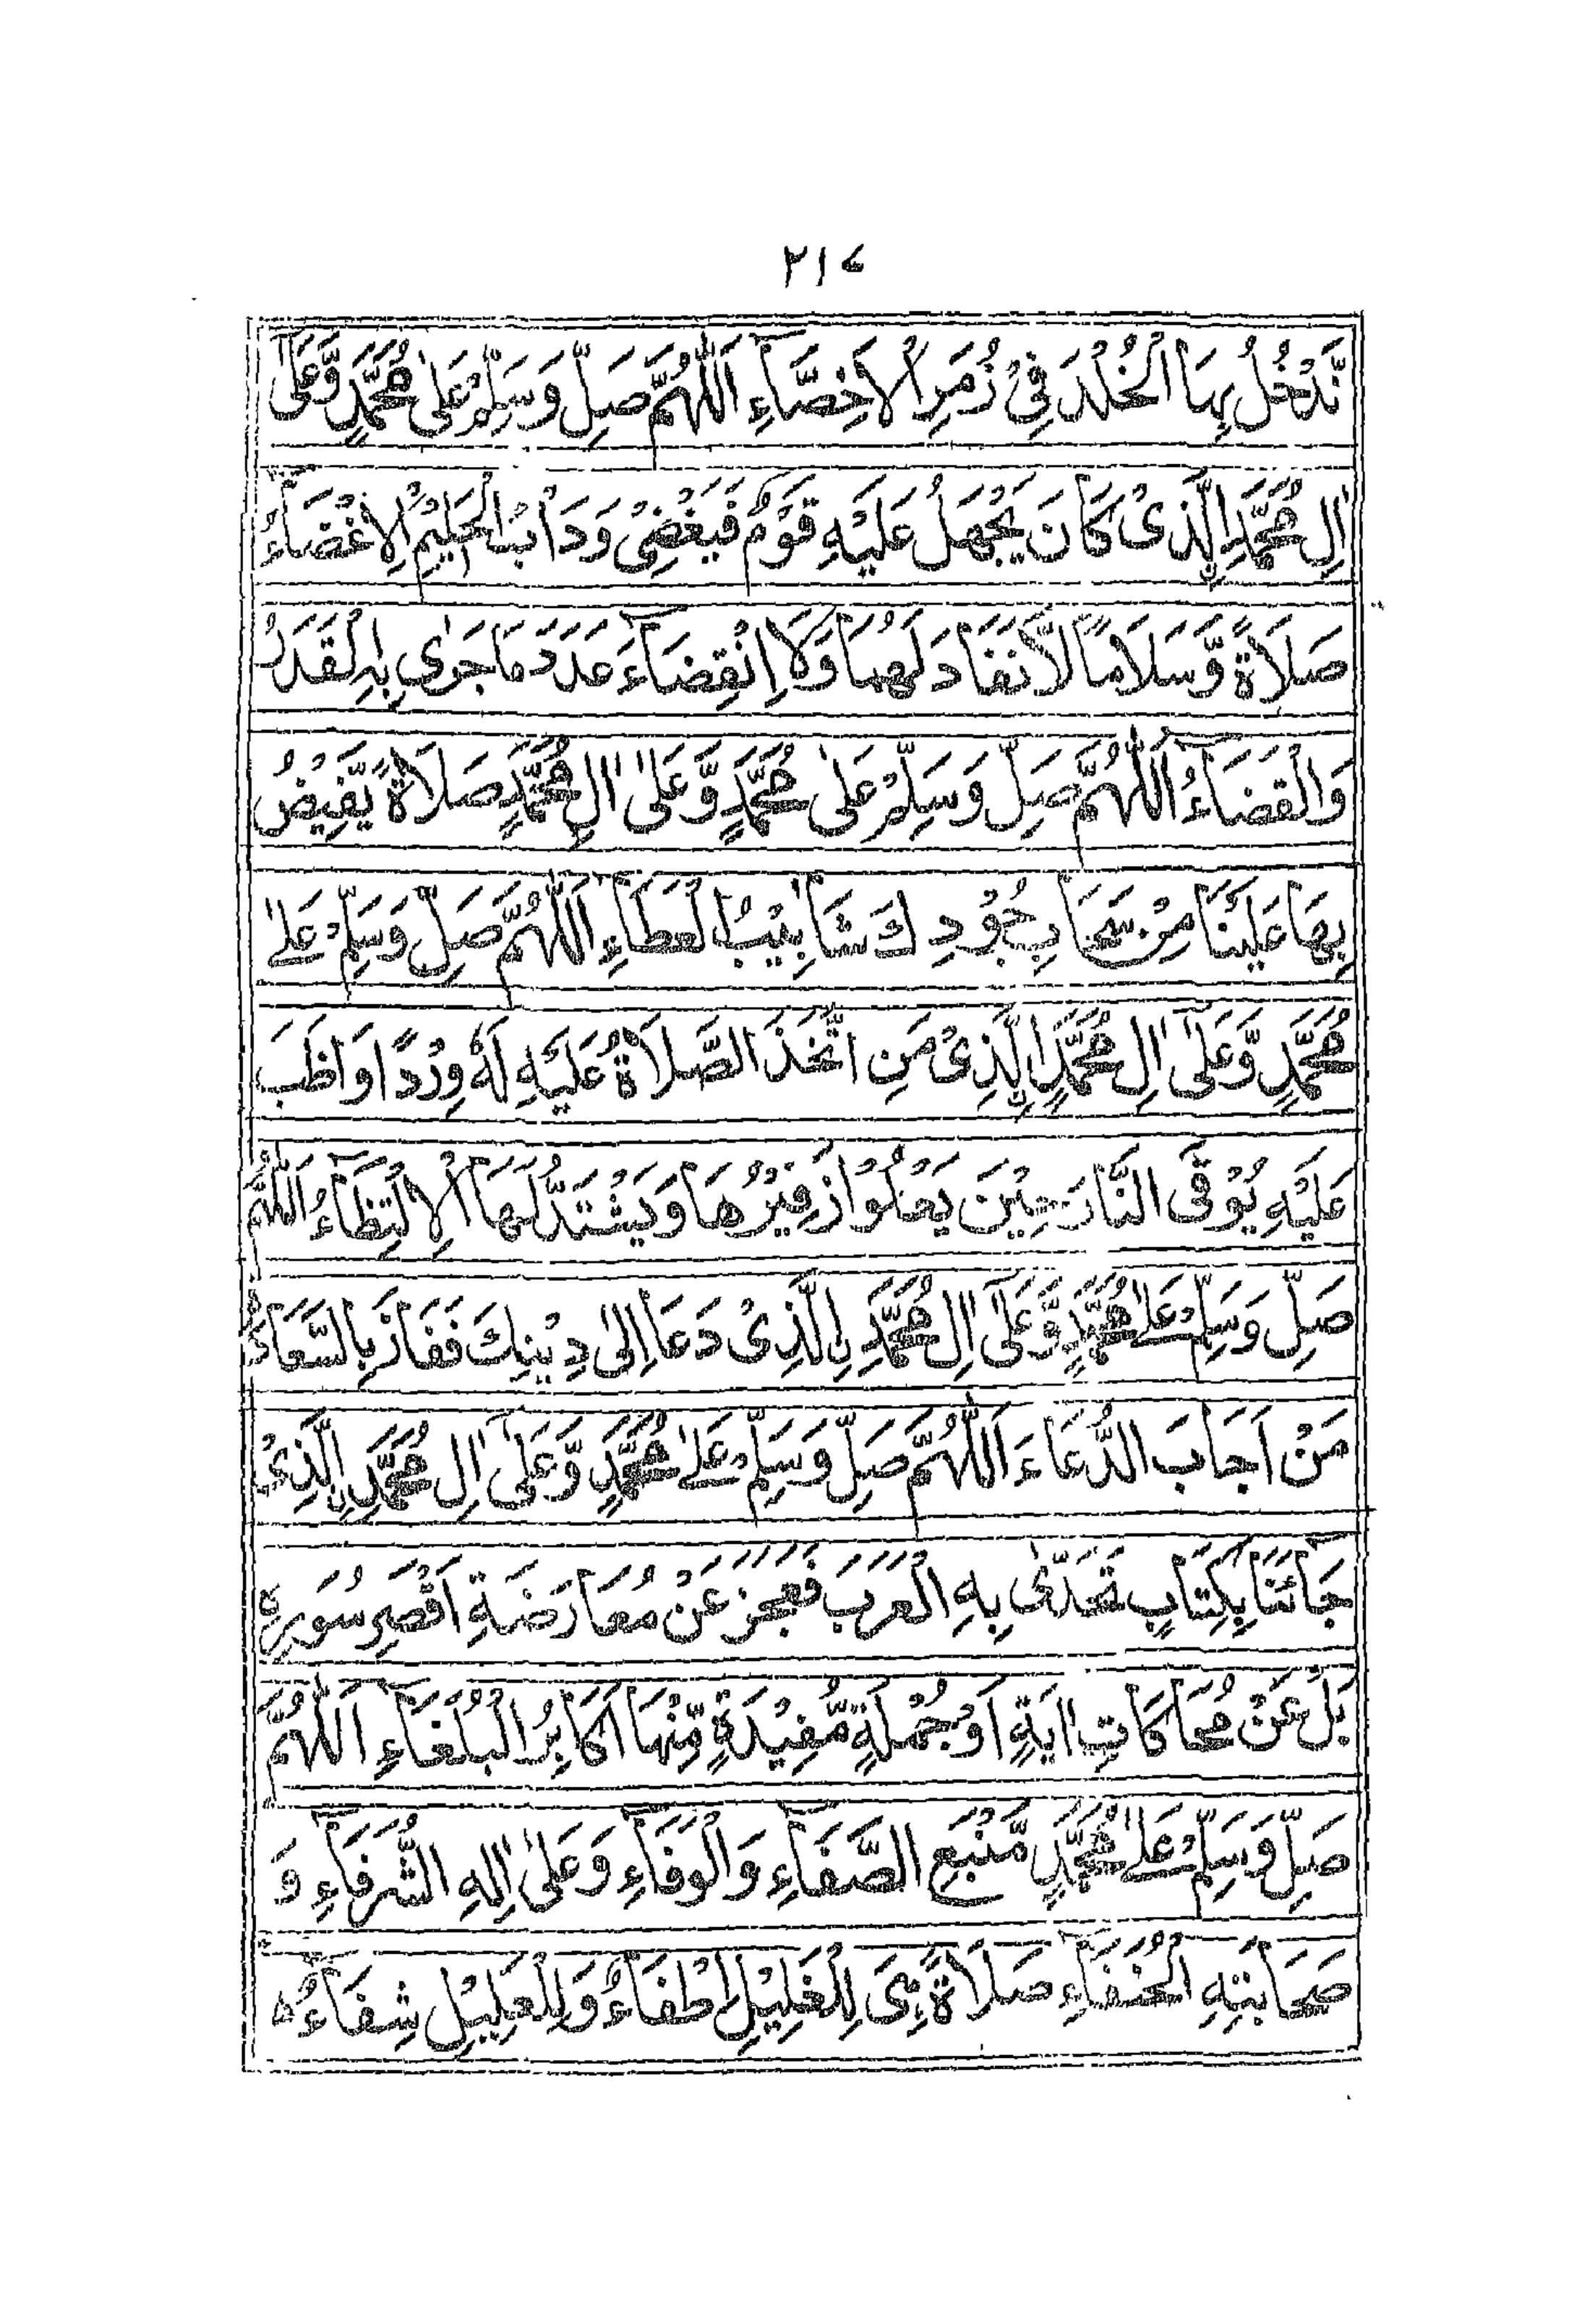 ۲۱۷
نَّدْخُلُ بِهَا الْخُلْدَ فِيْ زُمَرِ الْاَخِصَّآءِ اَللّٰهُمَّ صَلِّ وَسَلِّمْ عَلٰى مُحَمَّدٍ وَّعَلٰٓى
اٰلِ مُحَمَّدِ نِ الَّذِىْ كَانَ يَجْهَلُ عَلَيْهِ قَوْمٌ فَيُغْضِىْ وَدَاْبُ الْحَلِيْمِ الْاِغْضَآءُ
صَلَاةً وَّسَلَامًا لَّا نَفَادَ لَهُمَا وَلَا اِنْقِضَآءَ عَدَدَ مَا جَرٰى بِهِ الْقَدَرُ
وَالْقَضَآءُ اَللّٰهُمَّ صَلِّ وَسَلِّمْ عَلٰى مُحَمَّدٍ وَّعَلٰٓى اٰلِ مُحَمَّدٍ صَلَاةً يَّفِيْضُ
بِهَا عَلَيْنَا مِنْ سَحَابِ جُوْدِكَ شَاٰبِيْبُ الْعَطَآءِ اَللّٰهُمَّ صَلِّ وَسَلِّمْ عَلٰى
مُحَمَّدٍ وَّعَلٰٓى اٰلِ مُحَمَّدِ نِ الَّذِىْ مَنِ اتَّخَذَ الصَّلَاةَ عَلَيْهِ لَهٗ وِرْدًا وَاظَبَ
عَلَيْهِ يُوْقَى النَّارَ حِيْنَ يَعْلُوْا زَفِيْرُهَا وَيَشْتَدُّ لَهَا الْاِلْتِظَآءُ اَللّٰهُمَّ
صَلِّ وَسَلِّمْ عَلٰى مُحَمَّدٍ وَّعَلٰٓى اٰلِ مُحَمَّدِ نِ الَّذِىْ دَعَا اِلٰى دِيْنِكَ فَفَازَ بِالسَّعَادَةِ
مَنْ اَجَابَ الدُّعَاءَ اَللّٰهُمَّ صَلِّ وَسَلِّمْ عَلٰى مُحَمَّدٍ وَّعَلٰٓى اٰلِ مُحَمَّدِ نِ الَّذِىْ
جَآئَنَا بِكِتَابٍ تَحَدّٰى بِهِ الْعَرَبَ فَعَجَزَ عَنْ مُعَارَضَةِ اَقْصَرِ سُوَرِهٖ
بَلْ عَنْ مُحَاكَاتِ اٰيَةٍ اَوْ جُمْلَةٍ مُّفِيْدَةٍ مِّنْهَا اَكَابِرُ الْبُلَغَآءِ اَللّٰهُمَّ
صَلِّ وَسَلِّمْ عَلٰى مُحَمَّدٍ مَّنْبَعِ الصَّفَآءِ وَالْوَفَآءِ وَعَلٰى اٰلِهِ الشُّرَفَآءِ وَ
صَحَابَتِهِ الْحُنَفَآءِ صَلَاةً هِىَ لِلْغَلِيْلِ اِطْفَآءٌ وَلِلْعَلِيْلِ شِفَآءٌ